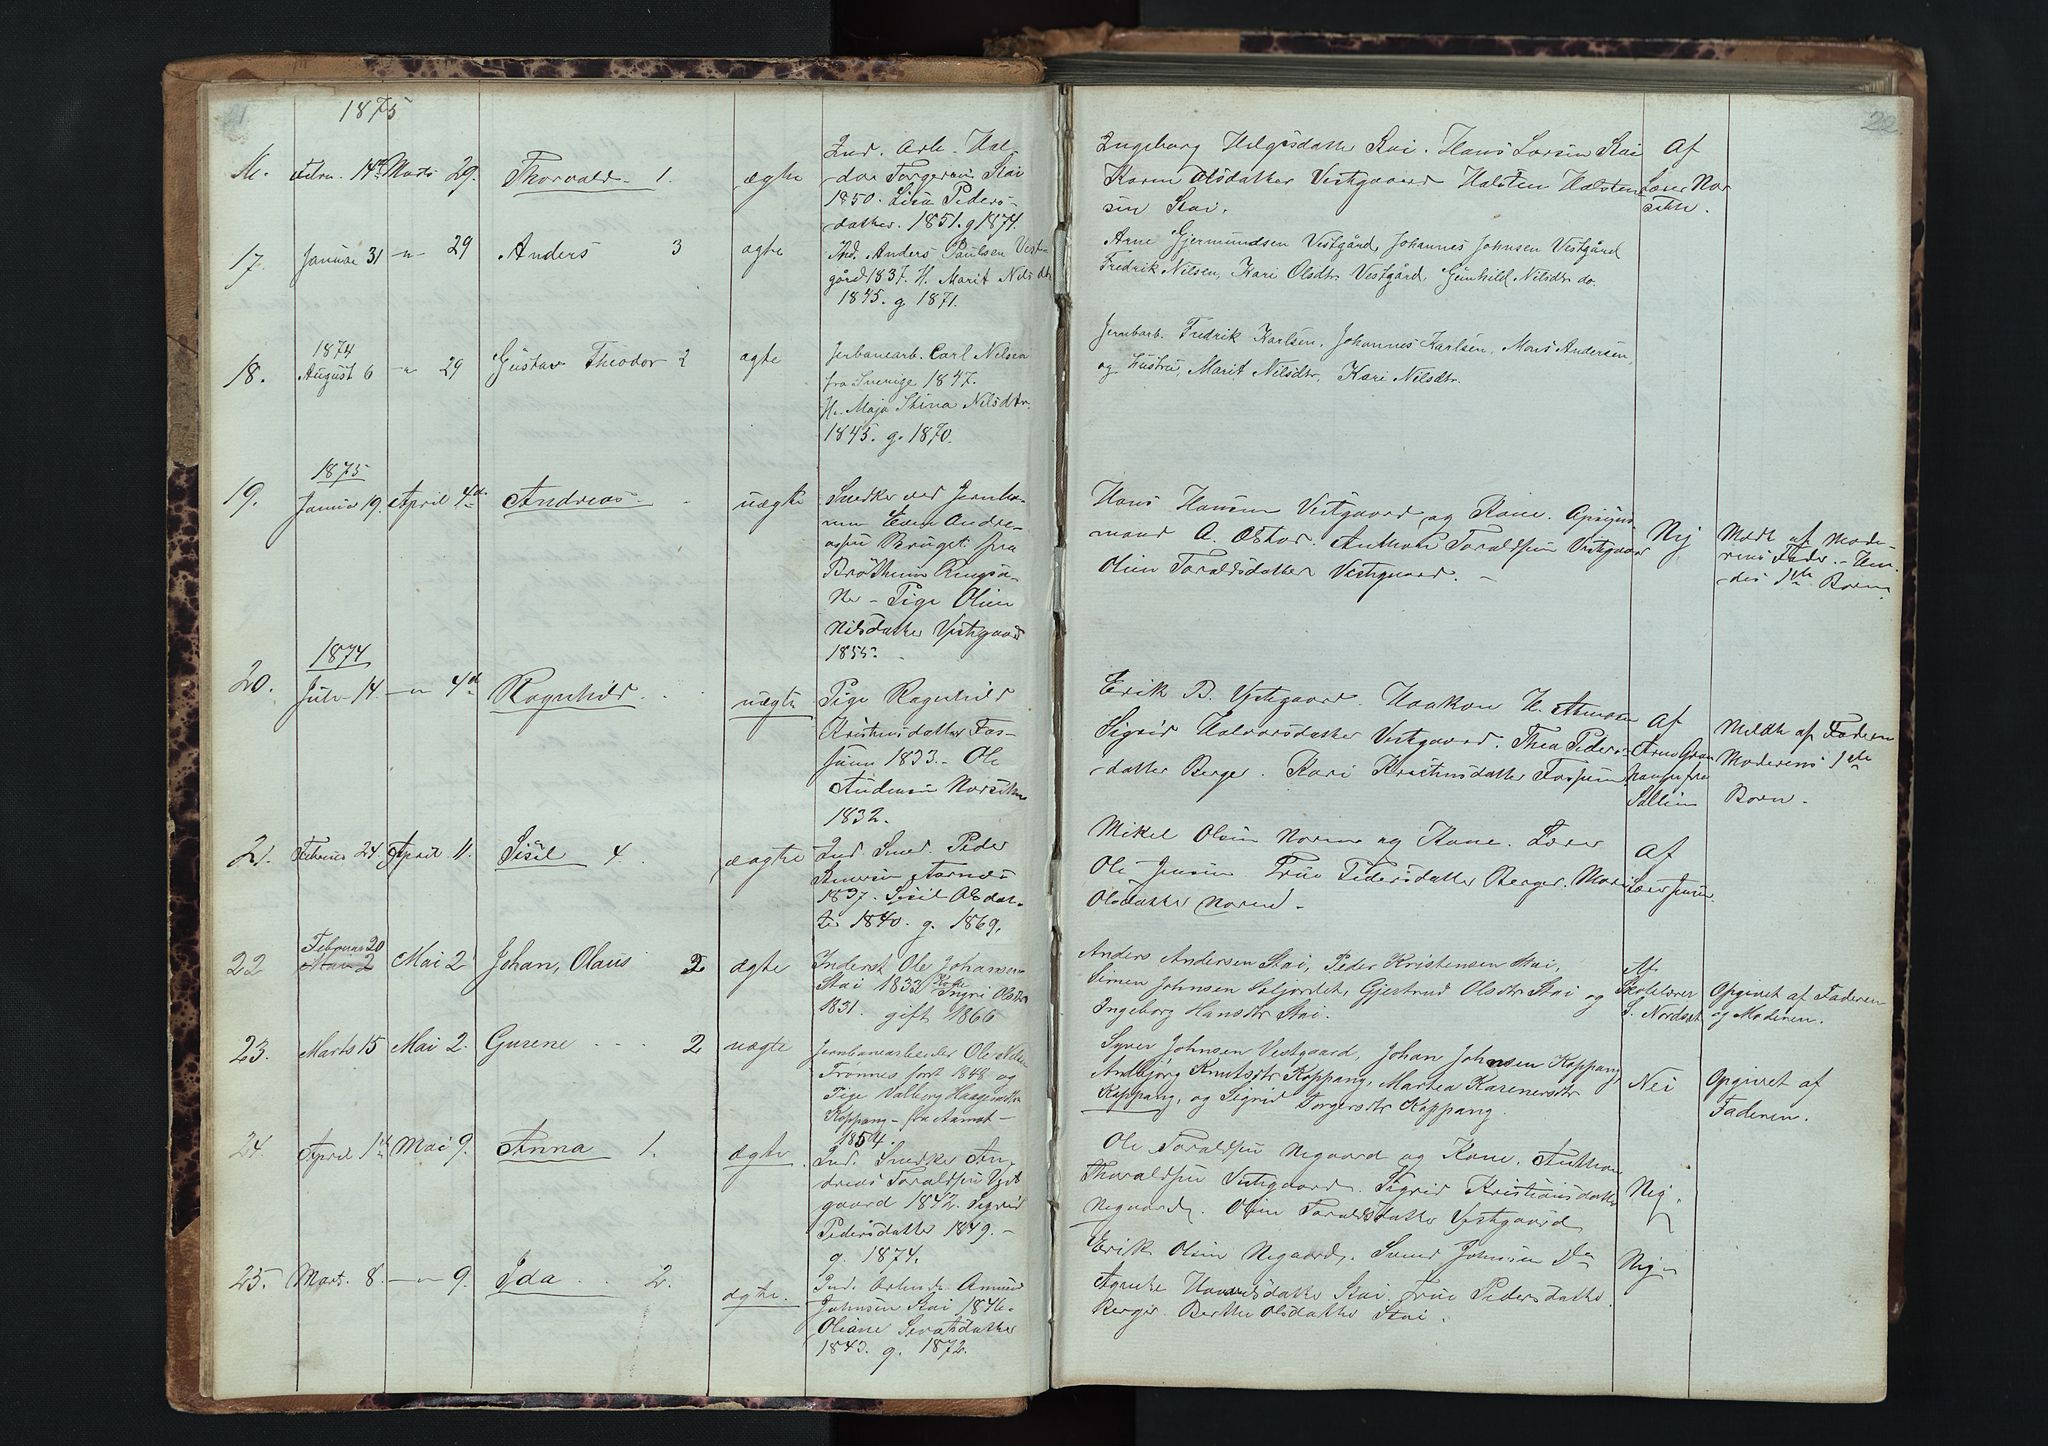 21
1875
16. Febru. 14de Marts 29. Thorvald 1. ægte
Ind. Arb. Hal-
dor Torgersen Stai
1850. Lisa Peders-
datter. 1851. g 1874.
Ingeborg Helgesdatter Stai. Hans Larsen Stai
Karen Olsdatter Vestgaard Halsten Halsten-
sen Stai.
Af
Lærer Nor
seth.
17. Januar 31 -"- 29 Anders 3 ægte
Ind. Anders Paulsen Vest-
gård 1837. H. Marit Nilsdtr
1845. g. 1871.
Arne Gjermundsen Vestgård, Johannes Johnsen Vestgård
Fredrik Nilsen, Kari Olsdtr Vestgård, Gunhild Nilsdtr do.
18. 1874
August 6 -"- 29 Gustav Theodor 2 ægte
Jerbanearb. Carl Nilsen
fra Sverige 1847.
H. Maja Stina Nilsdtr.
1845. g. 1870.
Jernbarb. Fredrik Karlsen, Johannes Karlsen, Mons Andersen,
og Hustru, Marit Nilsdtr, Kari Nilsdtr.
19. 1875
Januar 19. April 4de Andreas uægte
Snedker ved Jernba-
nen Even Andre-
assen Bruget fra
Brøttum Ringsa-
ker - Pige Oline
Nilsdatter Vestgaard
1855.
Hans Hansen Vestgaard og Kone. Opsyns-
mand A. Østor. Anthon Toraldsen Vestgaard
Oline Toraldsdatter Vestgaard.
Nej
Meldt af Mode-
rens Fader. - Hen-
des 1ste Barn.
20. 1874
Juli 14 -"- 4de Ragnhild uægte
Pige Ragnhild
Kristensdatter Fos-
sum 1833. Ole
Andersen Norseth
1832.
Erik B. Vestgaard. Haakon H. Atneosen
Sigrid Halvorsdatter Vestgaard. Thea Peders-
datter Berger. Kari Kristensdatter Fossum
Af
Sollien
Meldt af Faderen
Moderens 1ste
Barn.
21. Februar 24 April 11. Sisil 4. ægte
Ind. Smed. Peder
1837. Sisil Olsdat-
ter 1840. g. 1869.
Mikel Olsen Noren og Kone. Lærer
Ole Jensen Frue Pedersdatter Berger. Mari
Olsdatter Noren.
Af
Lærer Jensen
22 Februar 20 Mai 2 Johan, Olaus 2 ægte
Inderst Ole Johansen
Stai 1833 Kone Ingri Olsdtr
1831. gift 1866
Anders Andersen Stai, Peder Kristensen Stai,
Simen Johnsen Soljordet, Gjertrud Olsdtr Stai og
Ingeborg Hansdtr Stai.
Af
Skolelærer
S. Nordset
Opgivet af Faderen
og Moderen.
23. Marts 15 Mai 2. Gurene 2 uægte
Jernbanearbeider Ole Nilsen
Trønnes født 1848 og
Pige Valborg Haagensdtr
Koppang - fra Aamot -
1854.
Syver Johnsen Vestgaard, Johan Johnsen Koppang,
Andbjørg Knutsdtr Koppang, Martea Karenersdtr
Koppang, og Sigrid Torgersdtr Koppang.
Nei
Opgivet af
Faderen.
24. April 1ste Mai 9. Anna 1. ægte
Ind. Snedker An-
dreas Toraldsen Vest
gaard 1842. Sigrid
Pedersdatter 1849. -
g. 1874.
Ole Toraldsen Negaard og Kone. Anthon
Thoraldsen Vestgaard. Sigrid Kristiansdatter
Negaard. Oline Toraldsdatter Vestgaard
Nej.
25. Marts 8. -"- 9. Ida 2. ægte.
Ind. Arbeider Amund
Johnsen Stai 1846.
Oliane Sevatsdatter
1843. g. 1872.
Erik Olsen Negaard. Svend Johnsen Do
Agnethe Hansdatter Stai. Frue Pedersdatter
Berger. Berthe Olsdatter Stai.
Nej
22